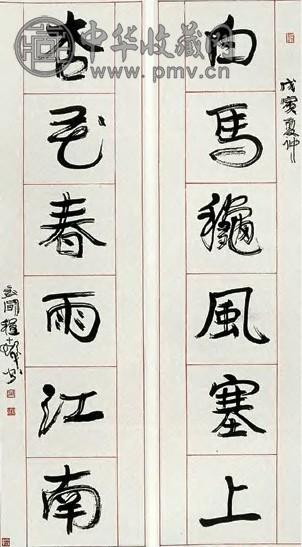 中华收藏网
www.pmv.cn
戊寅夏仲
白馬龝風塞上
杏花春雨江南